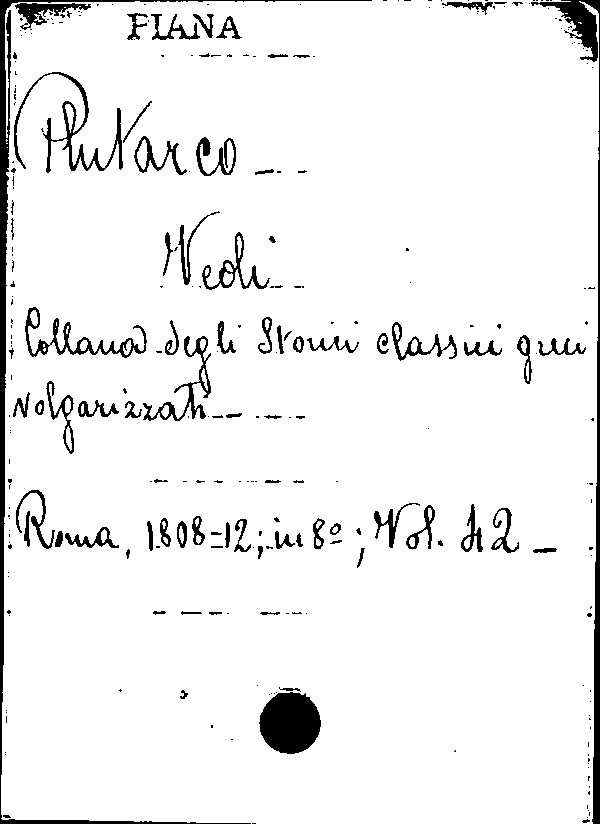 PIANA
Plutarco —
Vedi
Collana degli Storici classici greci
volgarizzati —
Roma, 1808=12; in 8º; Vol. 42 —